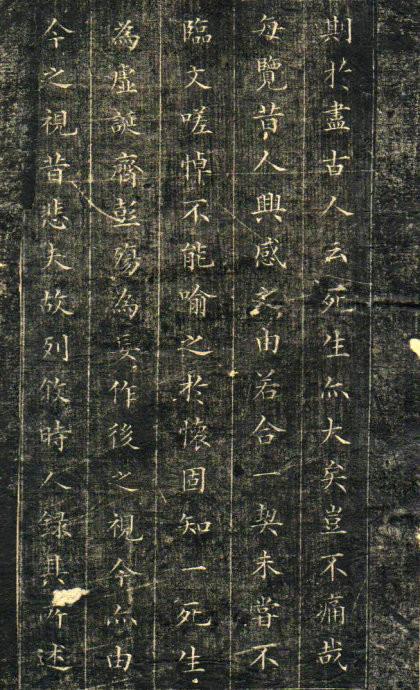 期於盡古人云死生亦大矣豈不痛哉
每覽昔人興感之由若合一契未嘗不
臨文嗟悼不能喻之於懷固知一死生
為虛誕齊彭殤為妄作後之視今亦由
今之視昔悲夫故列敘時人錄其所述